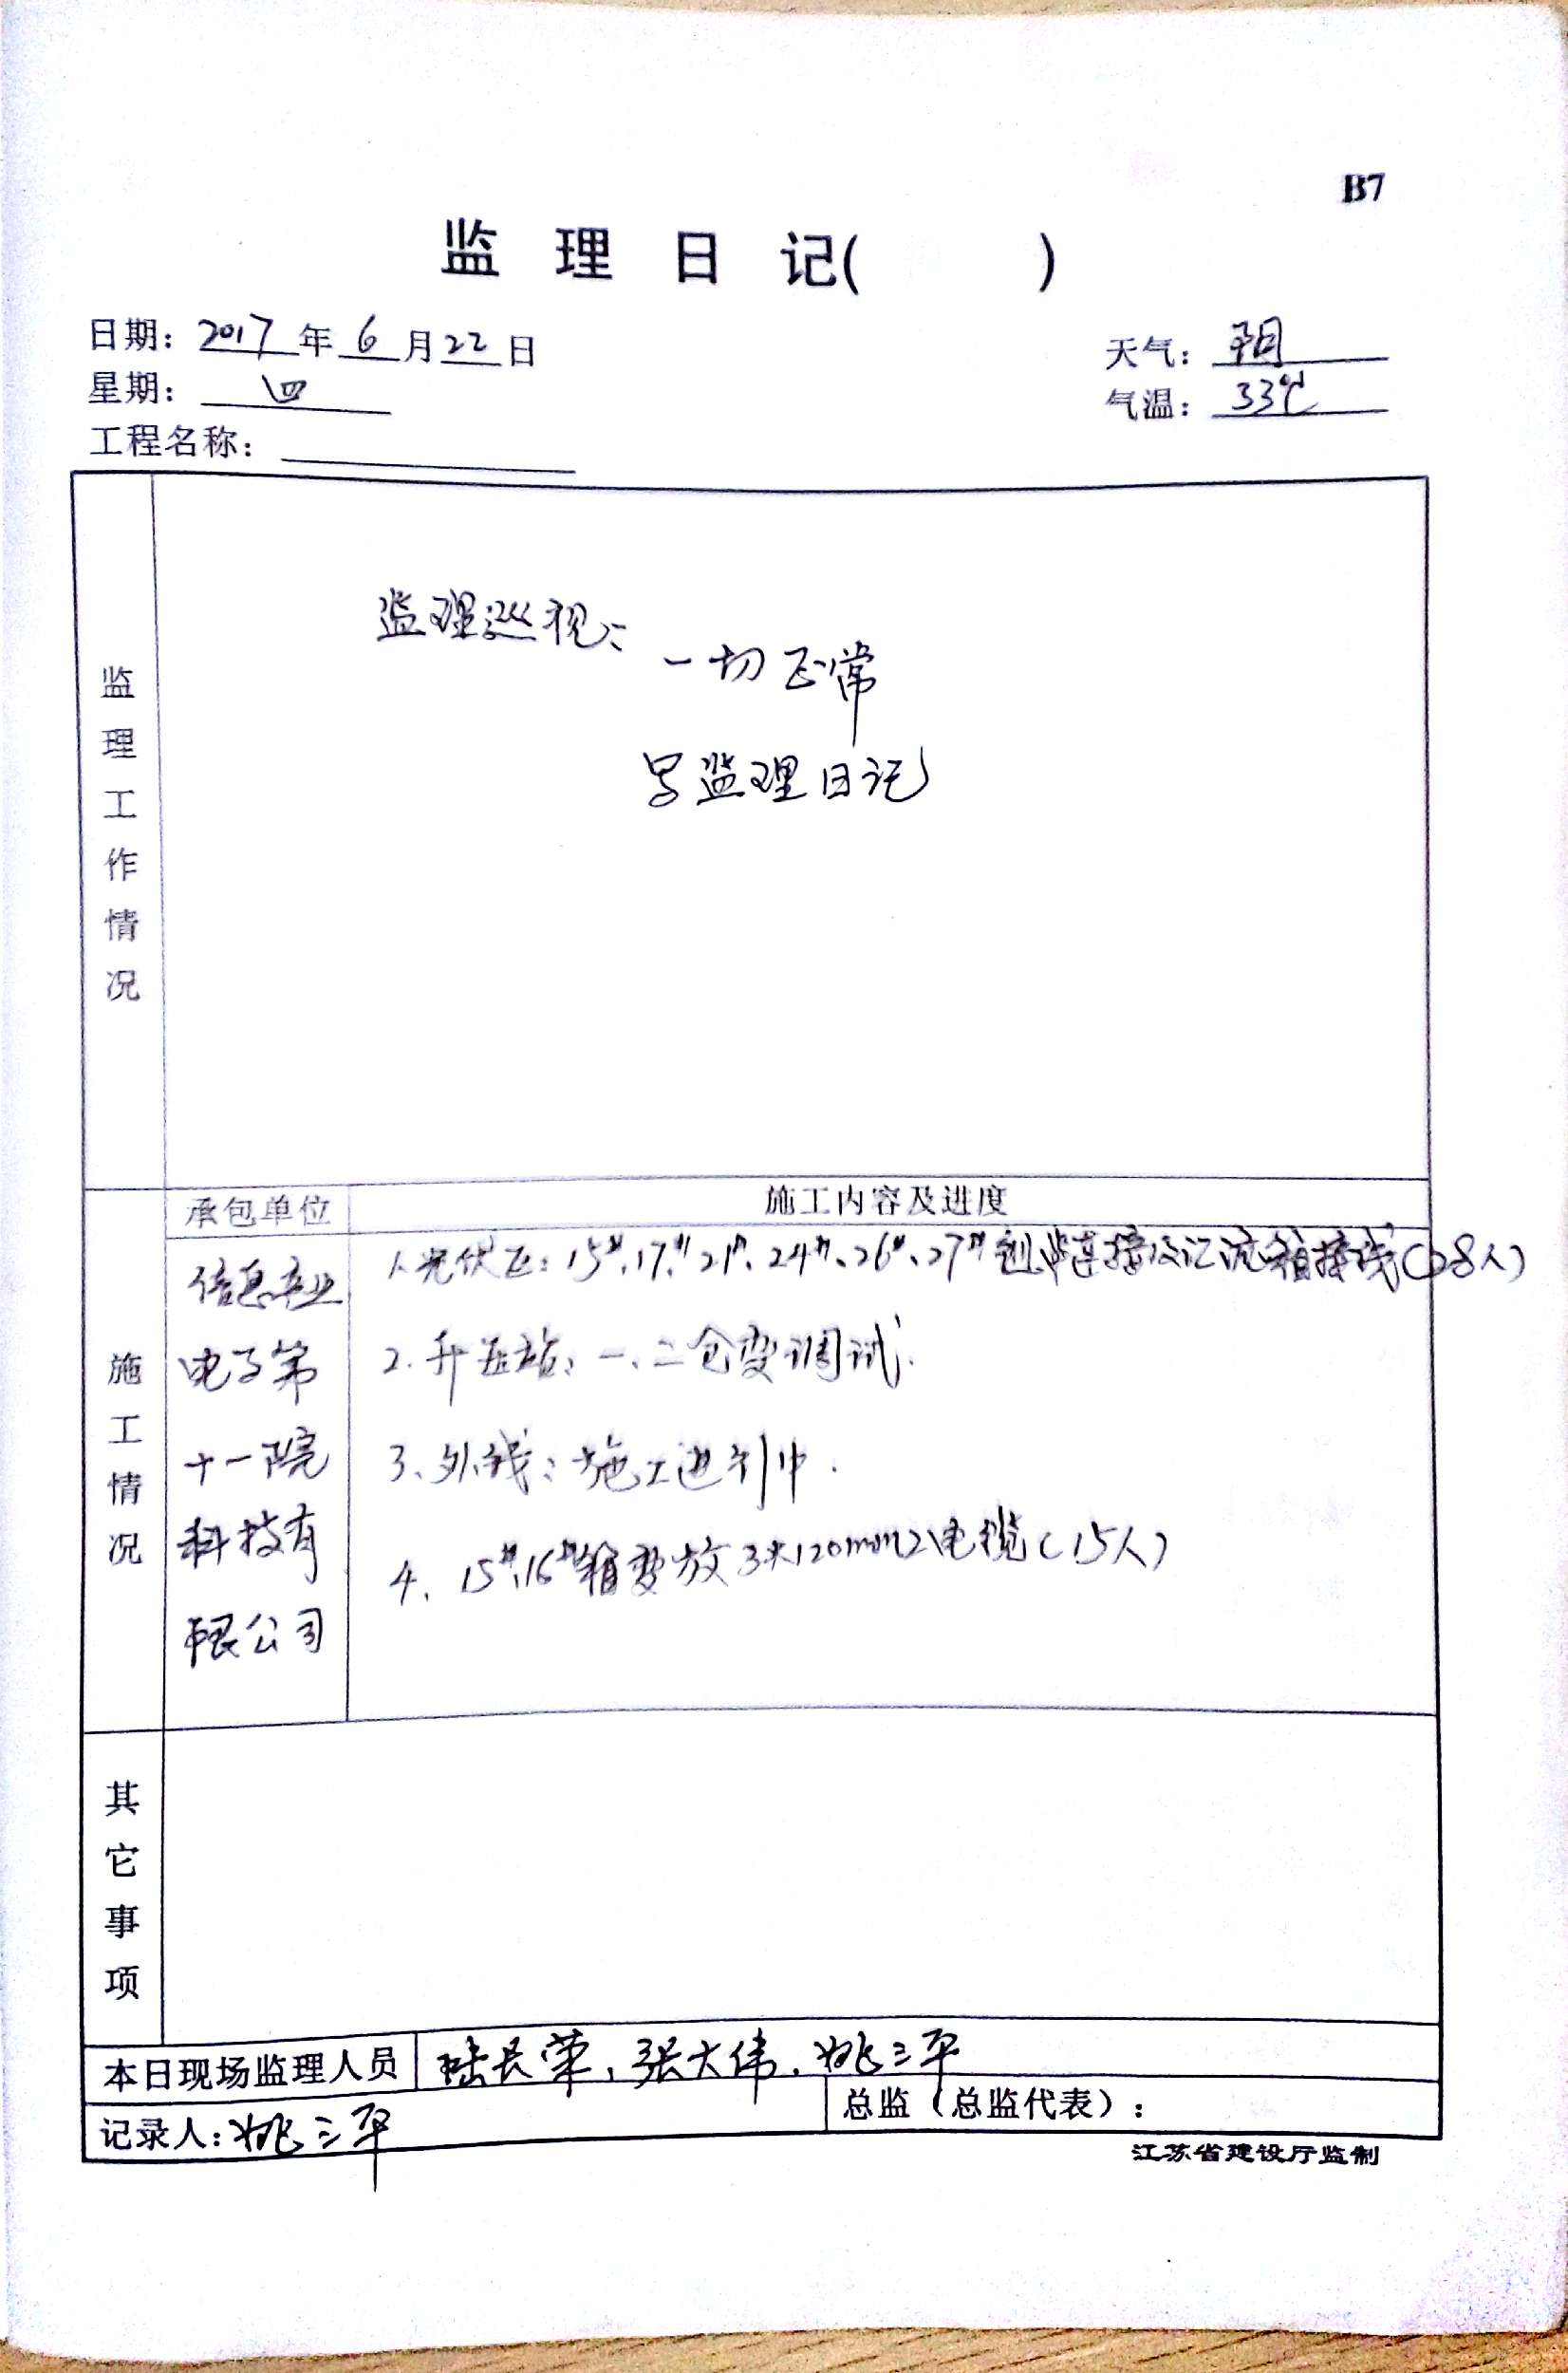 B7
监 理 日 记(    )
日期: 2017 年 6 月 22 日
天气: 阴
星期: 四
气温: 33℃
工程名称:
监理工作情况
监理巡视:
一切正常
写监理日记
承包单位
施工内容及进度
施工情况
信息产业
电子第
十一院
科技有
限公司
1、光伏区: 15#、17#、21#、24#、26#、27# 连接及汇流箱接线(28人)
2. 升压站: 一、二仓变调试.
3、外线: 施工进行中.
4、15#、16#箱变放3*120mm2电缆(15人)
其它事项
本日现场监理人员 陆长荣、张大伟、姚三平
记录人: 姚三平
总监(总监代表):
江苏省建设厅监制